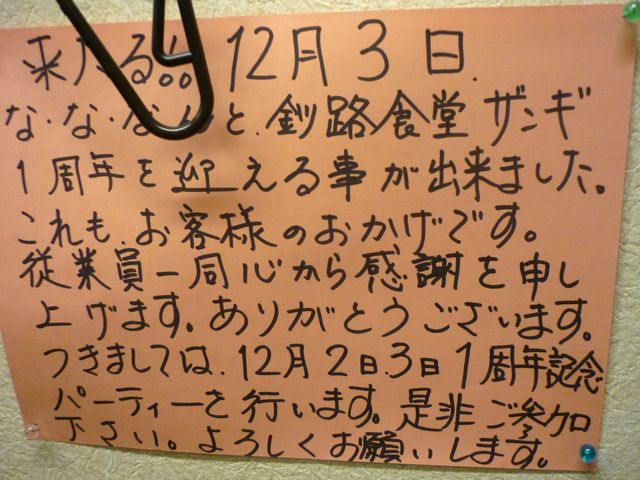 来たる!! 12月3日.
な・な・なんと.釧路食堂 ザンギ
1周年を迎える事が出来ました。
これも、お客様のおかげです。
従業員一同心から感謝を申し
上げます。ありがとうございます。
つきましては、12月2日.3日1周年記念
パーティーを行います。是非ご参加
下さい。よろしくお願いします。